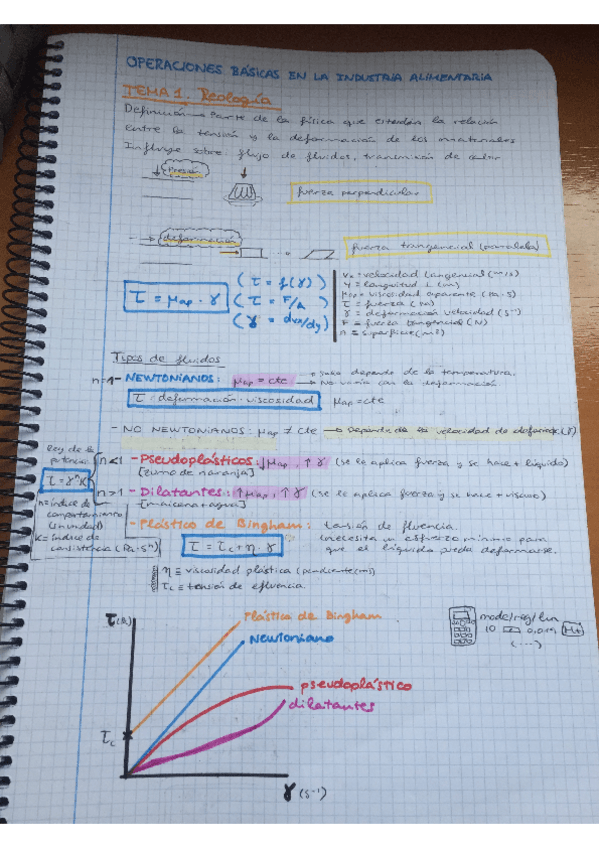 OPERACIONES BÁSICAS EN LA INDUSTRIA ALIMENTARIA
TEMA 1. Reología
Definición → Parte de la física que estudia la relación
entre la tensión y la deformación de los materiales
Influye sobre: flujo de fluidos, transmisión de calor
Presión
fuerza perpendicular
deformación
fuerza trangencial (paralela)
τ = μap · γ
(τ = f(γ))
(τ = F/A)
(γ = dvx/dy)
Vx = velocidad tangencial (m/s)
Y = longitud L (m)
μap = viscosidad aparente (Pa·s)
τ = fuerza (Pa)
γ = deformación velocidad (s⁻¹)
F = fuerza tangencial (N)
= superficie (m²)
Tipos de fluidos
n=1 - NEWTONIANOS: μap = cte → Solo depende de la temperatura.
→ No varía con la deformación
τ = deformación · viscosidad μap = cte
- NO NEWTONIANOS: μap ≠ cte → Depende de la velocidad de deformación (γ)
Ley de la
potencia:
τ = γⁿ K
n = índice de
comportamiento
K = índice de
consistencia (Pa·sⁿ)
n<1 - Pseudoplásticos: ↓μap, ↑γ (se le aplica fuerza y se hace + líquido)
[zumo de naranja]
n>1 - Dilatantes: ↑μap, ↑γ (se le aplica fuerza y se hace + viscoso)
[maicena + agua]
- Plástico de Bingham: tensión de fluencia.
(necesita un esfuerzo mínimo para
que el líquido pueda deformarse.
τ = τc + η · γ
η ≡ viscosidad plástica (pendiente)
τc ≡ tensión de efluencia.
τ (Pa)
Plástico de Bingham
Newtoniano
pseudoplástico
dilatantes
τc
γ (s⁻¹)
mode/reg/lin
10 0,019 M+
(...)